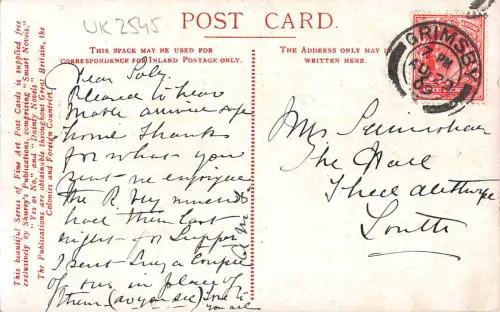 UK 2545
POST CARD.
THIS SPACE MAY BE USED FOR
CORRESPONDENCE FOR INLAND POSTAGE ONLY.
THE ADDRESS ONLY MAY
WRITTEN HERE.
This beautiful Series of Fine Art Post Cards is supplied free
exclusively by Shurey's Publications, comprising "Smart Novels,"
"Yes or No," and "Dainty Novels."
The Publications are obtainable throughout Great Britain, the
Colonies and Foreign Countries.
GRIMSBY
PM
Dear
Pleased to hear
arrive safe
home Thanks
for what you
sent we enjoyed
the R. very much
had them last
night for supper
I sent a couple
of our in place of
them (do you see) Love to
you all
Mrs
The Hall
Theddlethorpe
Louth